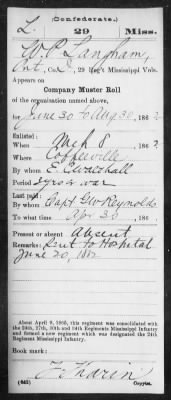 (Confederate.)
L. 29 Miss.
W. P. Langham,
Co. , 29 Reg't Mississippi Vols.
Appears on
Company Muster Roll
of the organization named above,
for June 30 to Aug 30, 1862
Enlisted:
When Mch 8, 1862
Where Coffeeville
By whom E. C. Walthall
Period 3 yrs or war
Last paid:
By whom Capt GW Reynolds
To what time Apr 30, 186
Present or absent Absent
Remarks: Sent to Hospital
June 20, 1862
About April 9, 1865, this regiment was consolidated with
the 24th, 27th, 30th and 34th Regiments Mississippi Infantry
and formed a new regiment which was designated the 24th
Regiment Mississippi Infantry.
Book mark:
(642) Copyist.